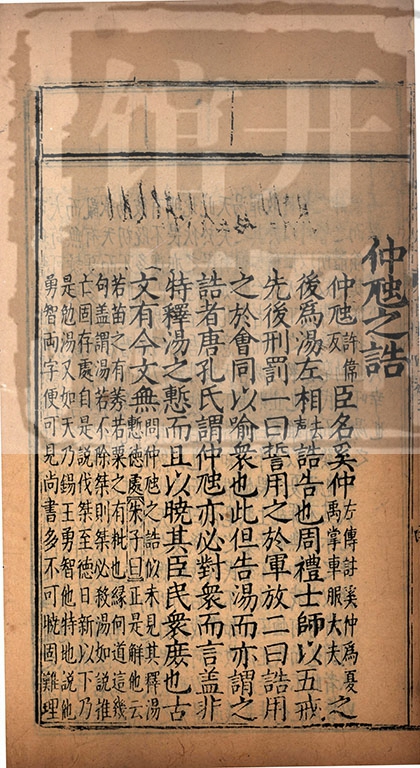 仲虺之誥
仲虺許偉反臣名奚仲左傳註奚仲爲夏禹掌車服大夫之
後爲湯左相去聲誥告也周禮士師以五戒
先後刑罰一曰誓用之於軍放二曰誥用
之於會同以喻衆也此但告湯而亦謂之
誥者唐孔氏謂仲虺亦必對衆而言盖非
特釋湯之慙而且以曉其臣民衆庶也古
文有今文無問仲虺之誥似未見其釋湯慙德處朱子曰正是解他云
若苗之有莠若粟之有粃也縁何道這幾
句盖謂湯若不除桀則桀必殺湯如說推
亡固存處自是說伐桀至德日新以下乃
是勉湯又如天乃錫王勇智他特地說他
勇智兩字便可見尚書多不可曉固難理